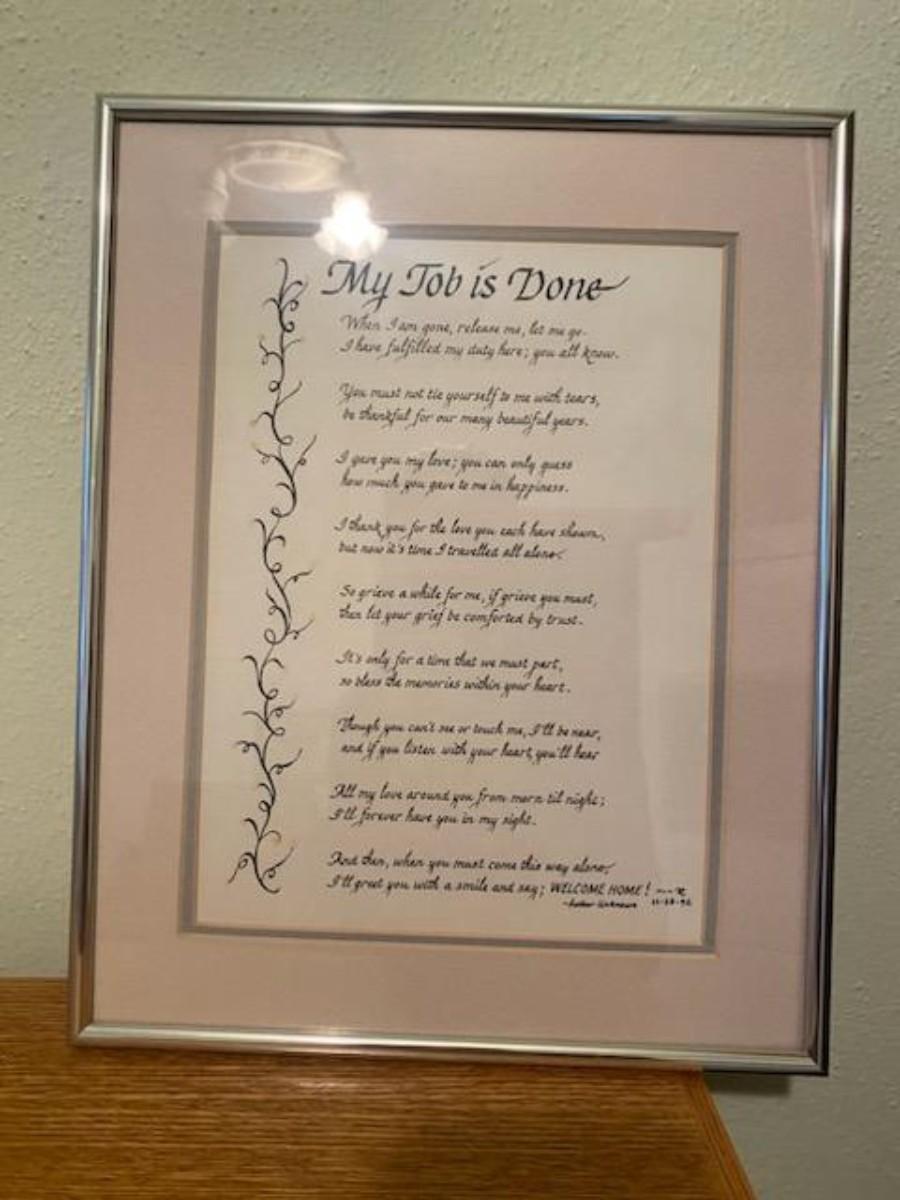 My Job is Done
When I am gone, release me, let me go.
I have fulfilled my duty here; you all know.
You must not tie yourself to me with tears,
be thankful for our many beautiful years.
I gave you my love; you can only guess
how much you gave to me in happiness.
I thank you for the love you each have shown,
but now it's time I travelled all alone.
So grieve a while for me, if grieve you must,
then let your grief be comforted by trust.
It's only for a time that we must part,
so bless the memories within your heart.
Though you can't see or touch me, I'll be near,
and if you listen with your heart, you'll hear
All my love around you from morn til night;
I'll forever have you in my sight.
And then, when you must come this way alone,
I'll greet you with a smile and say; WELCOME HOME!
-Author Unknown